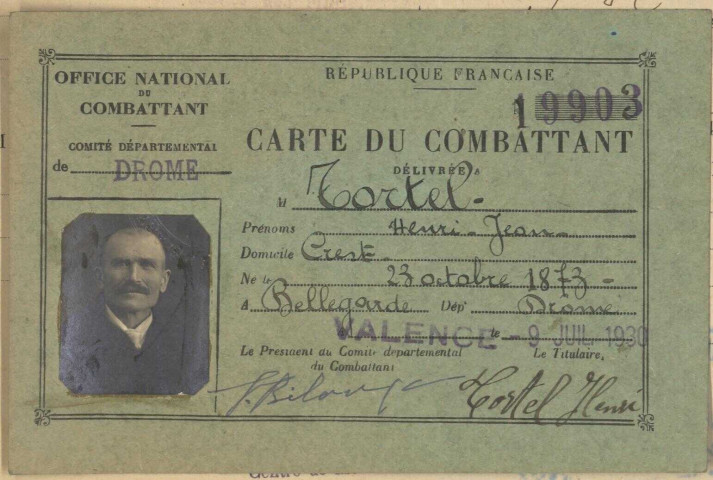 OFFICE NATIONAL
DU
COMBATTANT
COMITÉ DÉPARTEMENTAL
de DROME
RÉPUBLIQUE FRANÇAISE
19903
CARTE DU COMBATTANT
DÉLIVRÉE A
M Tortel
Prénoms Henri-Jean
Domicile Crest
Né le 23 octobre 1873
A Bellegarde Dépt Drome
VALENCE le -9 JUIL 1930
Le Président du Comité départemental
du Combattant
Le Titulaire,
Tortel Henri